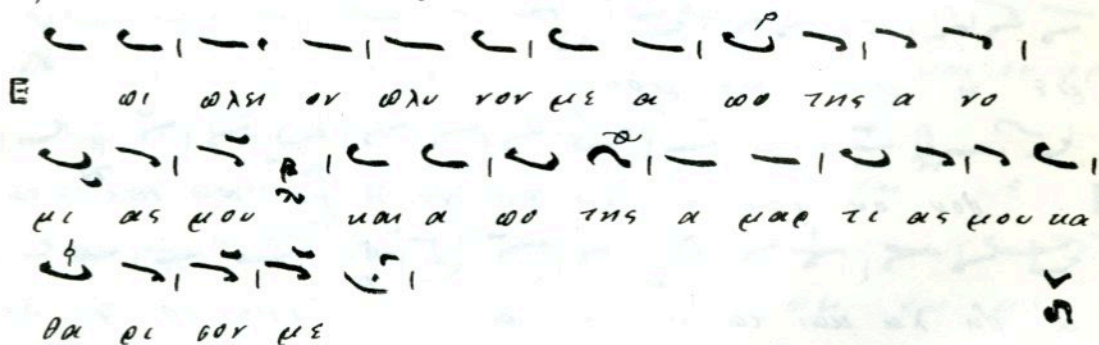 Ε πι πλει ον πλυ νον με α πο της α νο
μι ας μου και α πο της α μαρ τι ας μου κα
θα ρι σον με